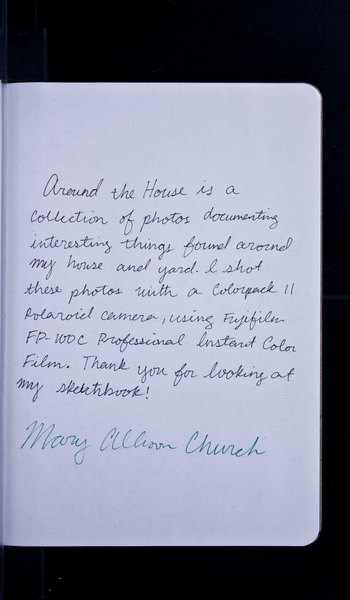 Around the House is a
collection of photos documenting
interesting things found around
my house and yard. I shot
these photos with a Colorpack II
Polaroid camera, using Fujifilm
FP-100C Professional Instant Color
Film. Thank you for looking at
my sketchbook!
Mary Allison Church